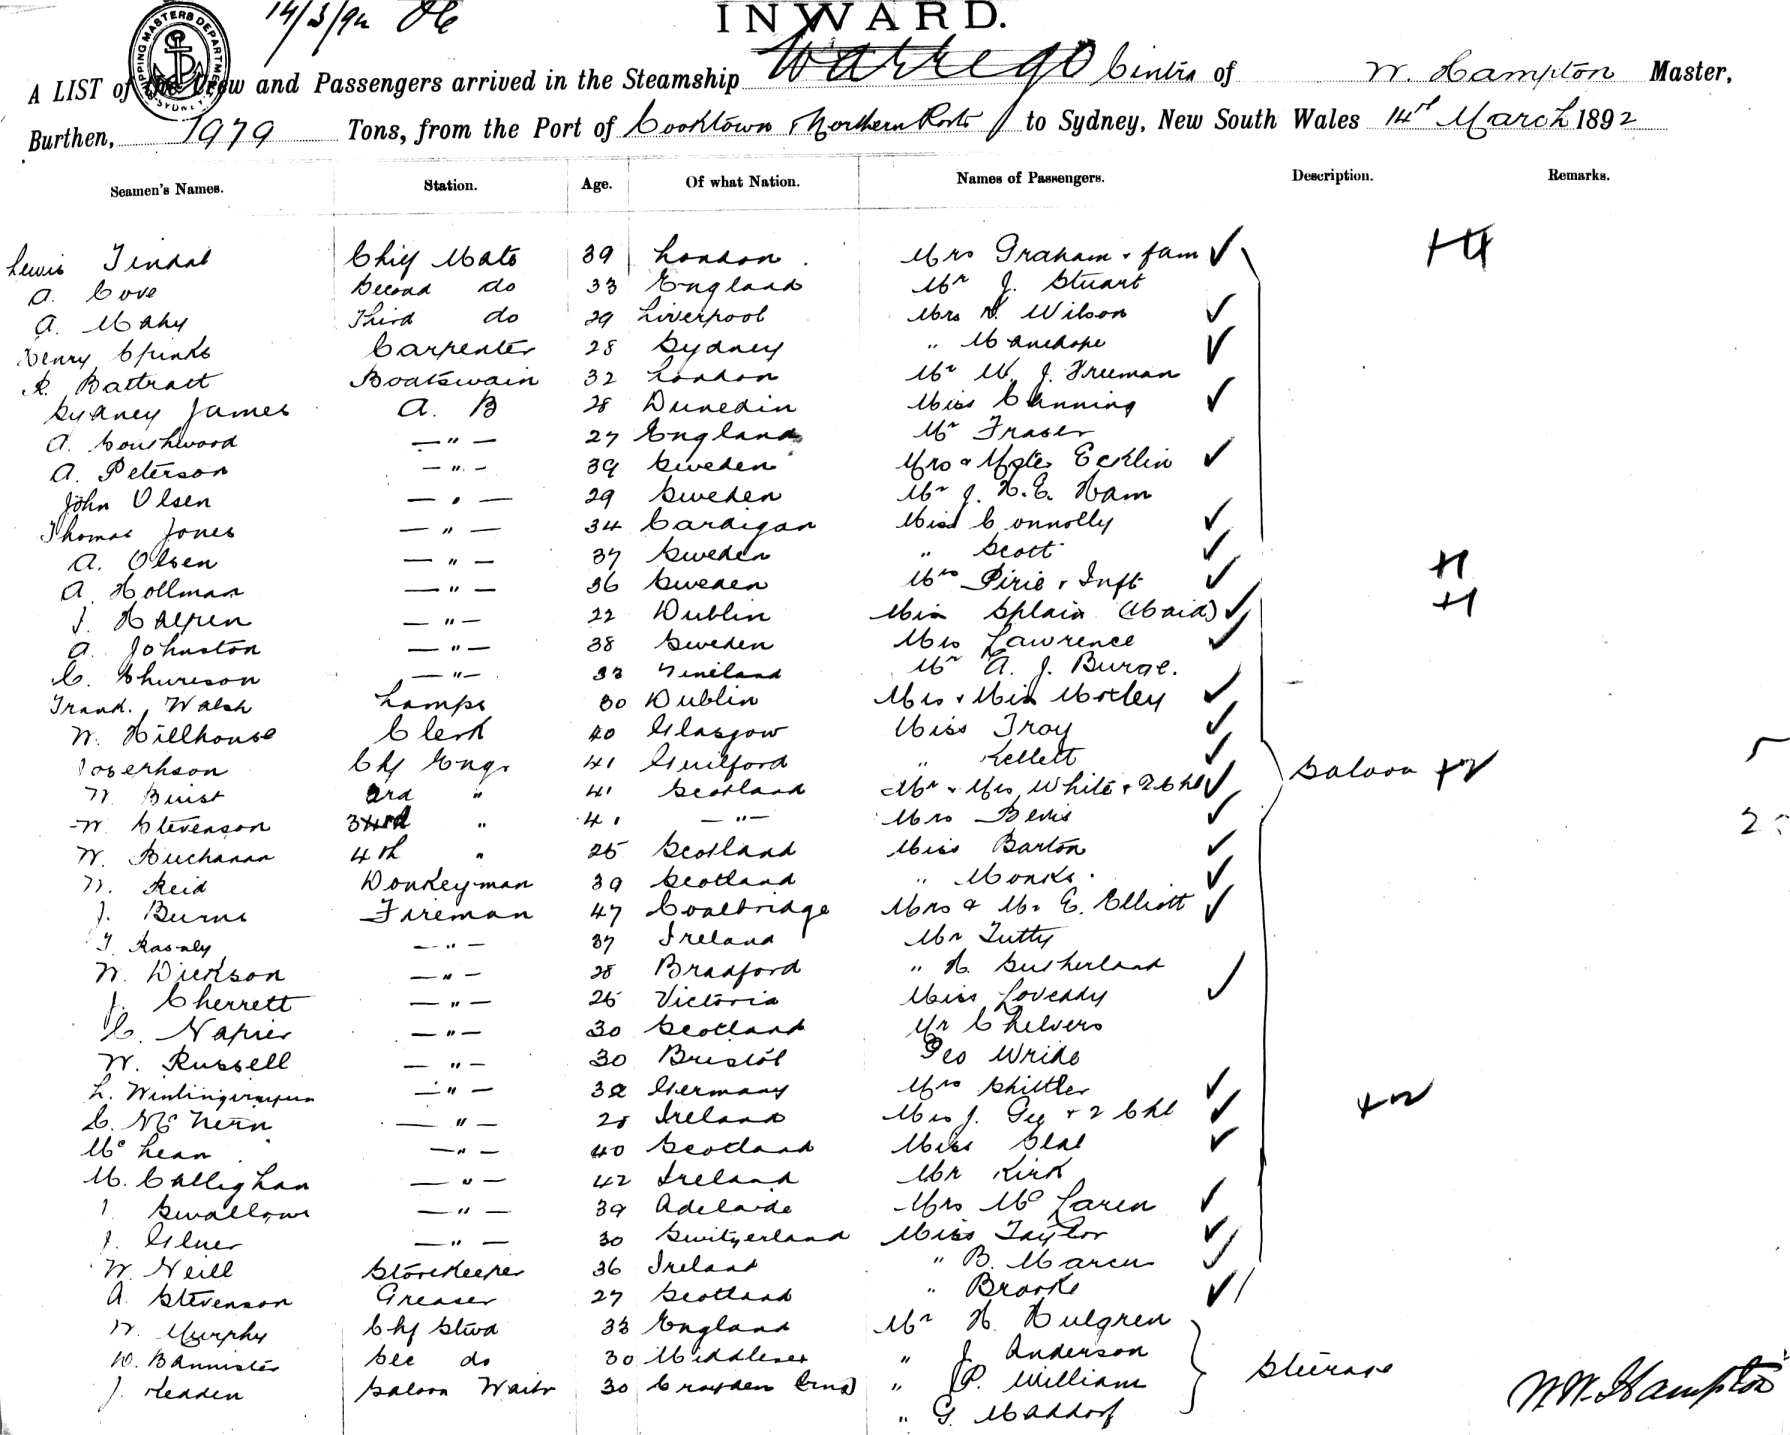 14/3/92
SHIPPING MASTERS DEPARTMENT SYDNEY
INWARD.
A LIST of the Crew and Passengers arrived in the Steamship Warrego Cintra of W. Hampton Master,
Burthen, 1979 Tons, from the Port of Cooktown & Northern Ports to Sydney, New South Wales 14th March 1892
Seamen's Names. Station. Age. Of what Nation. Names of Passengers. Description. Remarks.
Lewis Tindal Chief Mate 39 London Mrs Graham & fam
A. Cove Second do 33 England Mr J. Stuart
A. Mahy Third do 29 Liverpool Mrs Wilson
Henry Spinks Carpenter 28 Sydney "
R. Battract Boatswain 32 London Mr W. J. Freeman
Sydney James A. B 28 Dunedin Miss Canning
A. Southwood — " — 27 England Mr Fraser
A. Peterson — " — 39 Sweden Mrs & Mstr Ecklin
John Olsen — " — 29 Sweden Mr J. H. E. Ham
Thomas Jones — " — 34 Cardigan Miss Connolly
A. Olsen — " — 37 Sweden " Scott
A. Hollman — " — 36 Sweden Mrs Pirie & Inft
J. Halpen — " — 22 Dublin Miss Splain (Maid)
A. Johnston — " — 38 Sweden Mrs Lawrence
C. — " — 33 Mr A. J. Burge.
Frank. Walsh Lamps 30 Dublin Mrs & Miss Motley
W. Hillhouse Clerk 40 Glasgow Miss Troy
Josephson Chf Engr 41 Guilford " Kellett
W. Buist 2rd " 41 Scotland Mr & Mrs White & 2 Chl Saloon
W. Stevenson 3rd " 41 — " — Mrs Bevis
W. Buchanan 4th " 25 Scotland Miss Barton
W. Reid Donkeyman 39 Scotland " Monks.
J. Burns Fireman 47 Coatbridge Mrs & Mr E. Elliott
T. — " — 37 Ireland Mr Tutty
W. Dickson — " — 28 Bradford " H. Sutherland
J. Cherrett — " — 25 Victoria Miss Loveday
C. Napier — " — 30 Scotland Mr Chelvers
W. Russell — " — 30 Bristol Geo Wride
L. — " — 32 Germany Mrs Shittler
C. McNern — " — 28 Ireland Mrs J. Gee & 2 Chl
McLean — " — 40 Scotland Miss Seal
M. Callighan — " — 42 Ireland Mr Kirk
Swallow — " — 39 Adelaide Mrs McLaren
J. — " — 30 Switzerland Miss Taylor
W. Neill Storekeeper 36 Ireland " B. Marcus
A. Stevenson Greaser 27 Scotland " Brooke
W. Murphy Chf Stwd 33 England Mr H. Hulgren
W. Bannister Sec do 30 Middlesex " J. Anderson
J. Headen Saloon Waitr 30 Croyden " P. William Steerage
" G. Maddorf
W. W. Hampton